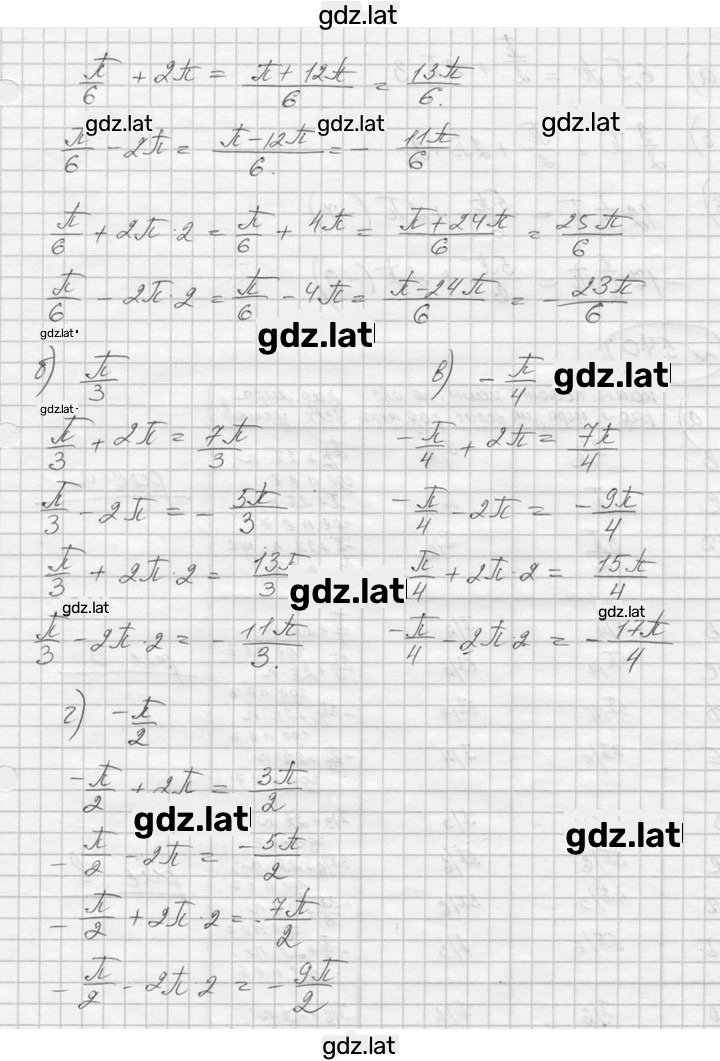 gdz.lat
π/6 + 2π = (π + 12π)/6 = 13π/6.
gdz.lat gdz.lat gdz.lat
π/6 - 2π = (π - 12π)/6. = - 11π/6
π/6 + 2π·2 = π/6 + 4π = (π + 24π)/6 = 25π/6
π/6 - 2π·2 = π/6 - 4π = (π - 24π)/6 = - 23π/6
gdz.lat gdz.lat
б) π/3 в) - π/4 gdz.lat
gdz.lat
π/3 + 2π = 7π/3 - π/4 + 2π = 7π/4
π/3 - 2π = - 5π/3 - π/4 - 2π = - 9π/4
π/3 + 2π·2 = 13π/3 gdz.lat π/4 + 2π·2 = 15π/4
gdz.lat gdz.lat
π/3 - 2π·2 = - 11π/3. - π/4 - 2π·2 = - 17π/4
г) - π/2
- π/2 + 2π = 3π/2
gdz.lat gdz.lat
- π/2 - 2π = - 5π/2
- π/2 + 2π·2 = - 7π/2
- π/2 - 2π·2 = - 9π/2
gdz.lat